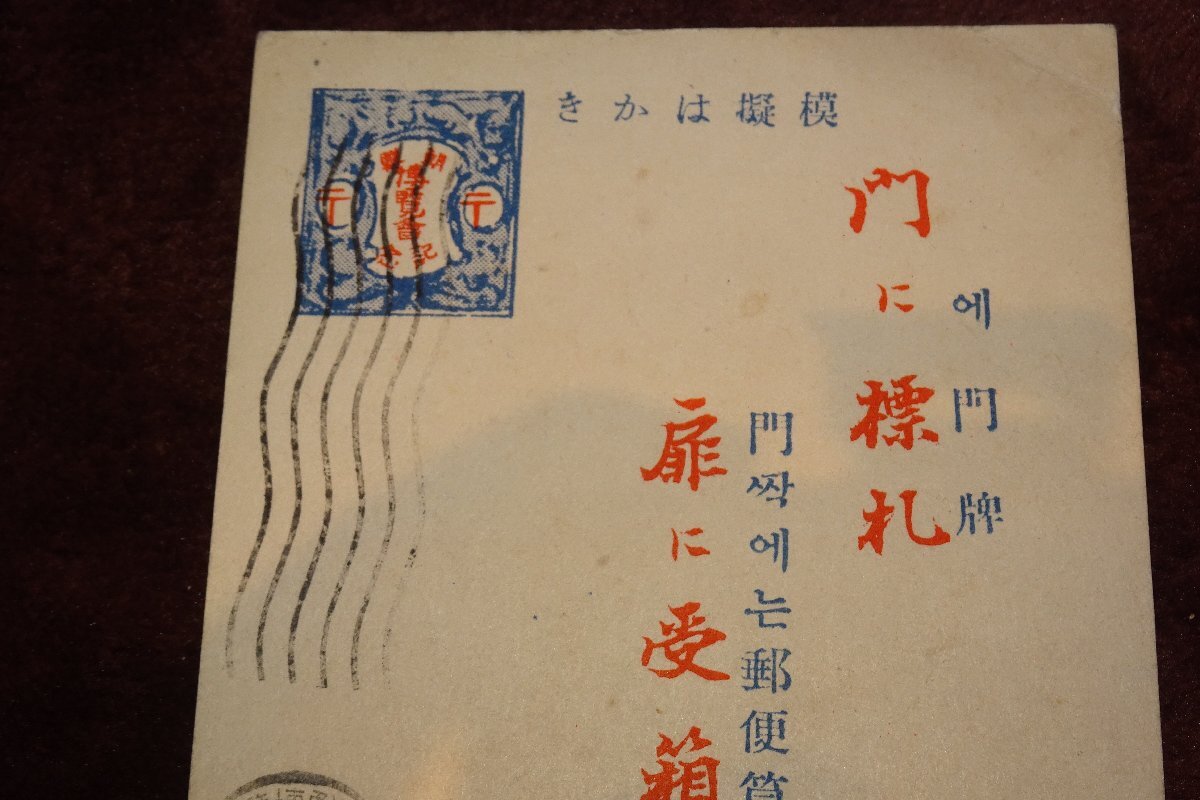 模擬はかき
門に標札
에門牌
扉に受箱
門싹에는郵便筒
朝鮮
博覽會
記念
〒
〒